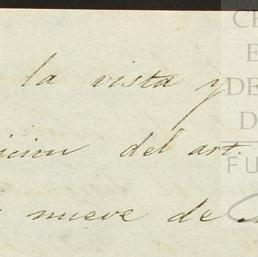 la vista y
icion del art.
nueve de
CE
E
DE
D
F U